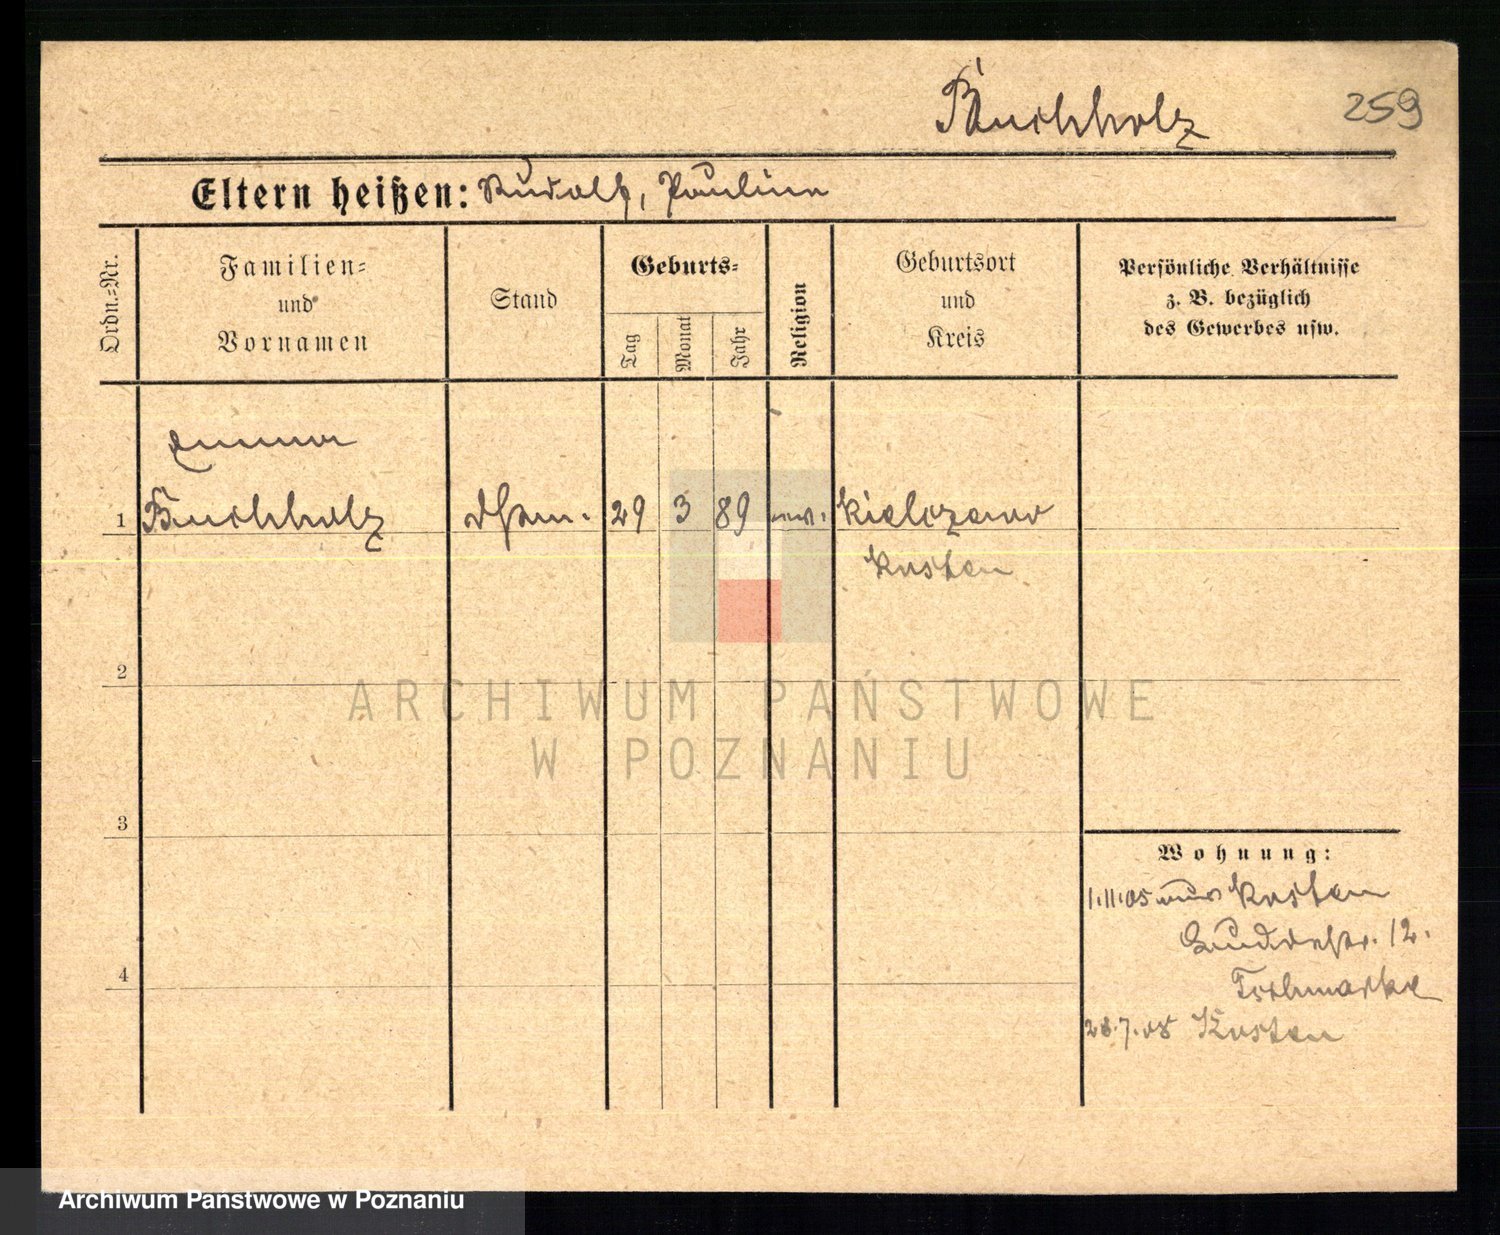 Buchholz 259
Eltern heißen: Rudolf, Pauline
Ordn.-Nr.
Familien-
und
Vornamen
Stand
Geburts-
Tag
Monat
Jahr
Religion
Geburtsort
und
Kreis
Persönliche Verhältnisse
z. B. bezüglich
des Gewerbes usw.
Emma
1 Buchholz 29 3 89 Kielczewo
Kosten
2
ARCHIWUM PAŃSTWOWE
W POZNANIU
3
Wohnung:
1.11.05 Kosten
12.
4
28.7.08 Kosten
Archiwum Państwowe w Poznaniu